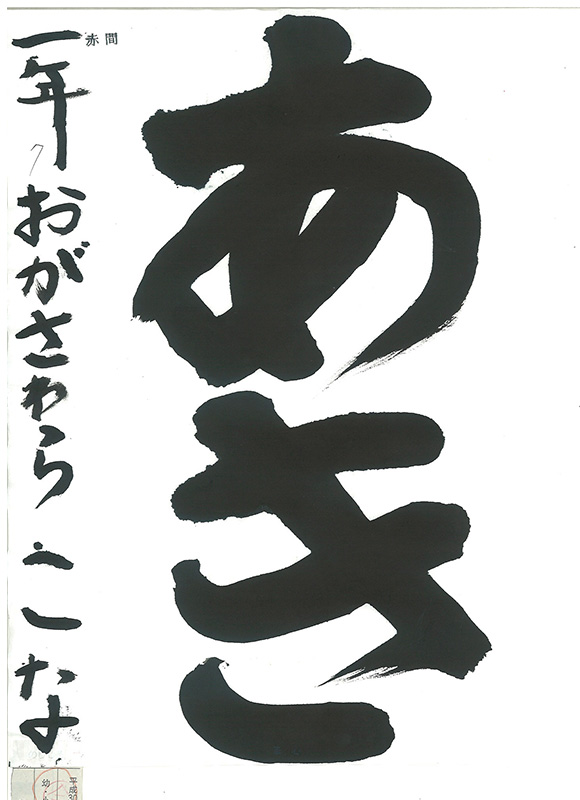 あき
赤間
一年
おがさわら
ここな
平成30
幼・